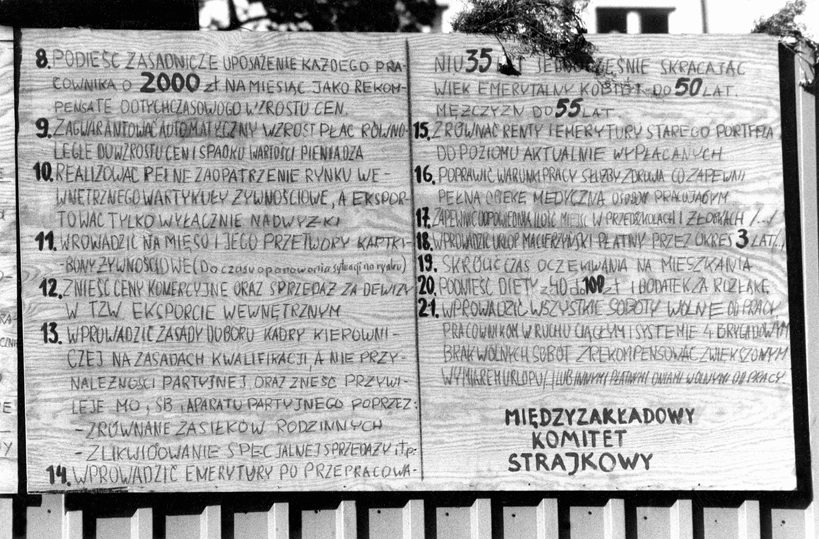 8. PODIEŚĆ ZASADNICZE UPOSAŻENIE KAŻDEGO PRA-
COWNIKA O 2000 zł NA MIESIĄC JAKO REKOM-
PENSATE DOTYCHCZASOWEGO WZROSTU CEN.
9. ZAGWARANTOWAĆ AUTOMATYCZNY WZROST PŁAC RÓWNO-
LEGLE DO WZROSTU CEN I SPADKU WARTOŚCI PIENIĄDZA
10. REALIZOWAĆ PEŁNE ZAOPATRZENIE RYNKU WE-
WNĘTRZNEGO W ARTYKUŁY ŻYWNOŚCIOWE, A EKSPOR-
TOWAĆ TYLKO WYŁĄCZNIE NADWYŻKI
11. WROWADZIĆ NA MIĘSO I JEGO PRZETWORY KARTKI
-BONY ŻYWNOŚCIOWE (Do czasu opanowania sytuacji na rynku)
12. ZNIEŚĆ CENY KOMERCYJNE ORAZ SPRZEDAŻ ZA DEWIZY
W TZW. EKSPORCIE WEWNĘTRZNYM
13. WPROWADZIĆ ZASADY DOBORU KADRY KIEROWNI-
CZEJ NA ZASADACH KWALIFIKACJI, A NIE PRZY-
NALEŻNOŚCI PARTYJNEJ ORAZ ZNEŚĆ PRZYWI-
LEJE MO, SB i APARATU PARTYJNEGO POPRZEZ:
- ZRÓWNANE ZASIŁKÓW RODZINNYCH
- ZLIKWIDOWANIE SPECJALNEJ SPRZEDAŻY itp.
14. WPROWADZIĆ EMERYTURY PO PRZEPRACOWA-
NIU 35 LAT JEDNOCZEŚNIE SKRACAJĄC
WIEK EMERYTALNY KOBIET DO 50 LAT.
MĘŻCZYZN DO 55 LAT.
15. ZRÓWNAĆ RENTY I EMERYTURY STAREGO PORTFELA
DO POZIOMU AKTUALNIE WYPŁACANYCH
16. POPRAWIĆ WARUNKI PRACY SŁUŻBY ZDROWIA CO ZAPEWNI
PEŁNĄ OPIEKĘ MEDYCZNĄ OSOBOM PRACUJĄCYM.
17. ZAPEWNIĆ ODPOWIEDNIĄ ILOŚĆ MIEJSC W PRZEDSZKOLACH I ŻŁOBKACH /.../
18. WPROWADZIĆ URLOP MACIERZYŃSKI PŁATNY PRZEZ OKRES 3 LAT.
19. SKRÓCIĆ CZAS OCZEKIWANIA NA MIESZKANIA
20. PODNIEŚĆ DIETY z 40 do 100 zł I DODATEK ZA ROZŁĄKĘ.
21. WPROWADZIĆ WSZYSTKIE SOBOTY WOLNE OD PRACY.
PRACOWNIKOM W RUCHU CIĄGŁYM I SYSTEMIE 4 BRYGADOWYM
BRAK WOLNYCH SOBÓT ZREKOMPENSOWAĆ ZWIĘKSZONYM
WYMIAREM URLOPU/ / LUB INNYMI PŁATNYMI DNIAMI WOLNYMI OD PRACY.
MIĘDZYZAKŁADOWY
KOMITET
STRAJKOWY